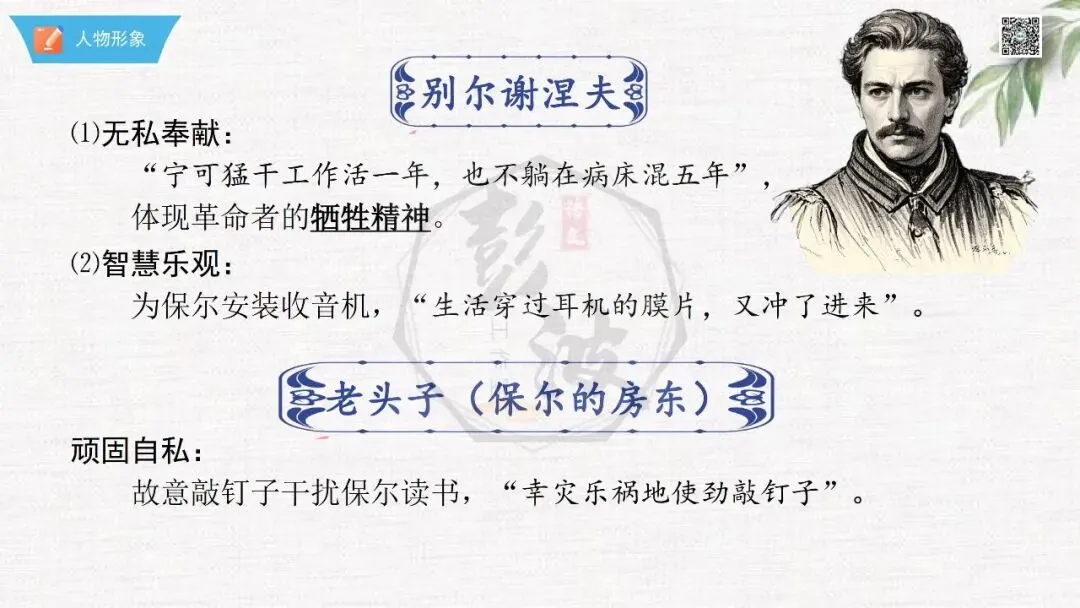 人物形象
别尔谢涅夫
⑴无私奉献：
“宁可猛干工作活一年，也不躺在病床混五年”，
体现革命者的牺牲精神。
⑵智慧乐观：
为保尔安装收音机，“生活穿过耳机的膜片，又冲了进来”。
老头子（保尔的房东）
顽固自私：
故意敲钉子干扰保尔读书，“幸灾乐祸地使劲敲钉子”。
彭波